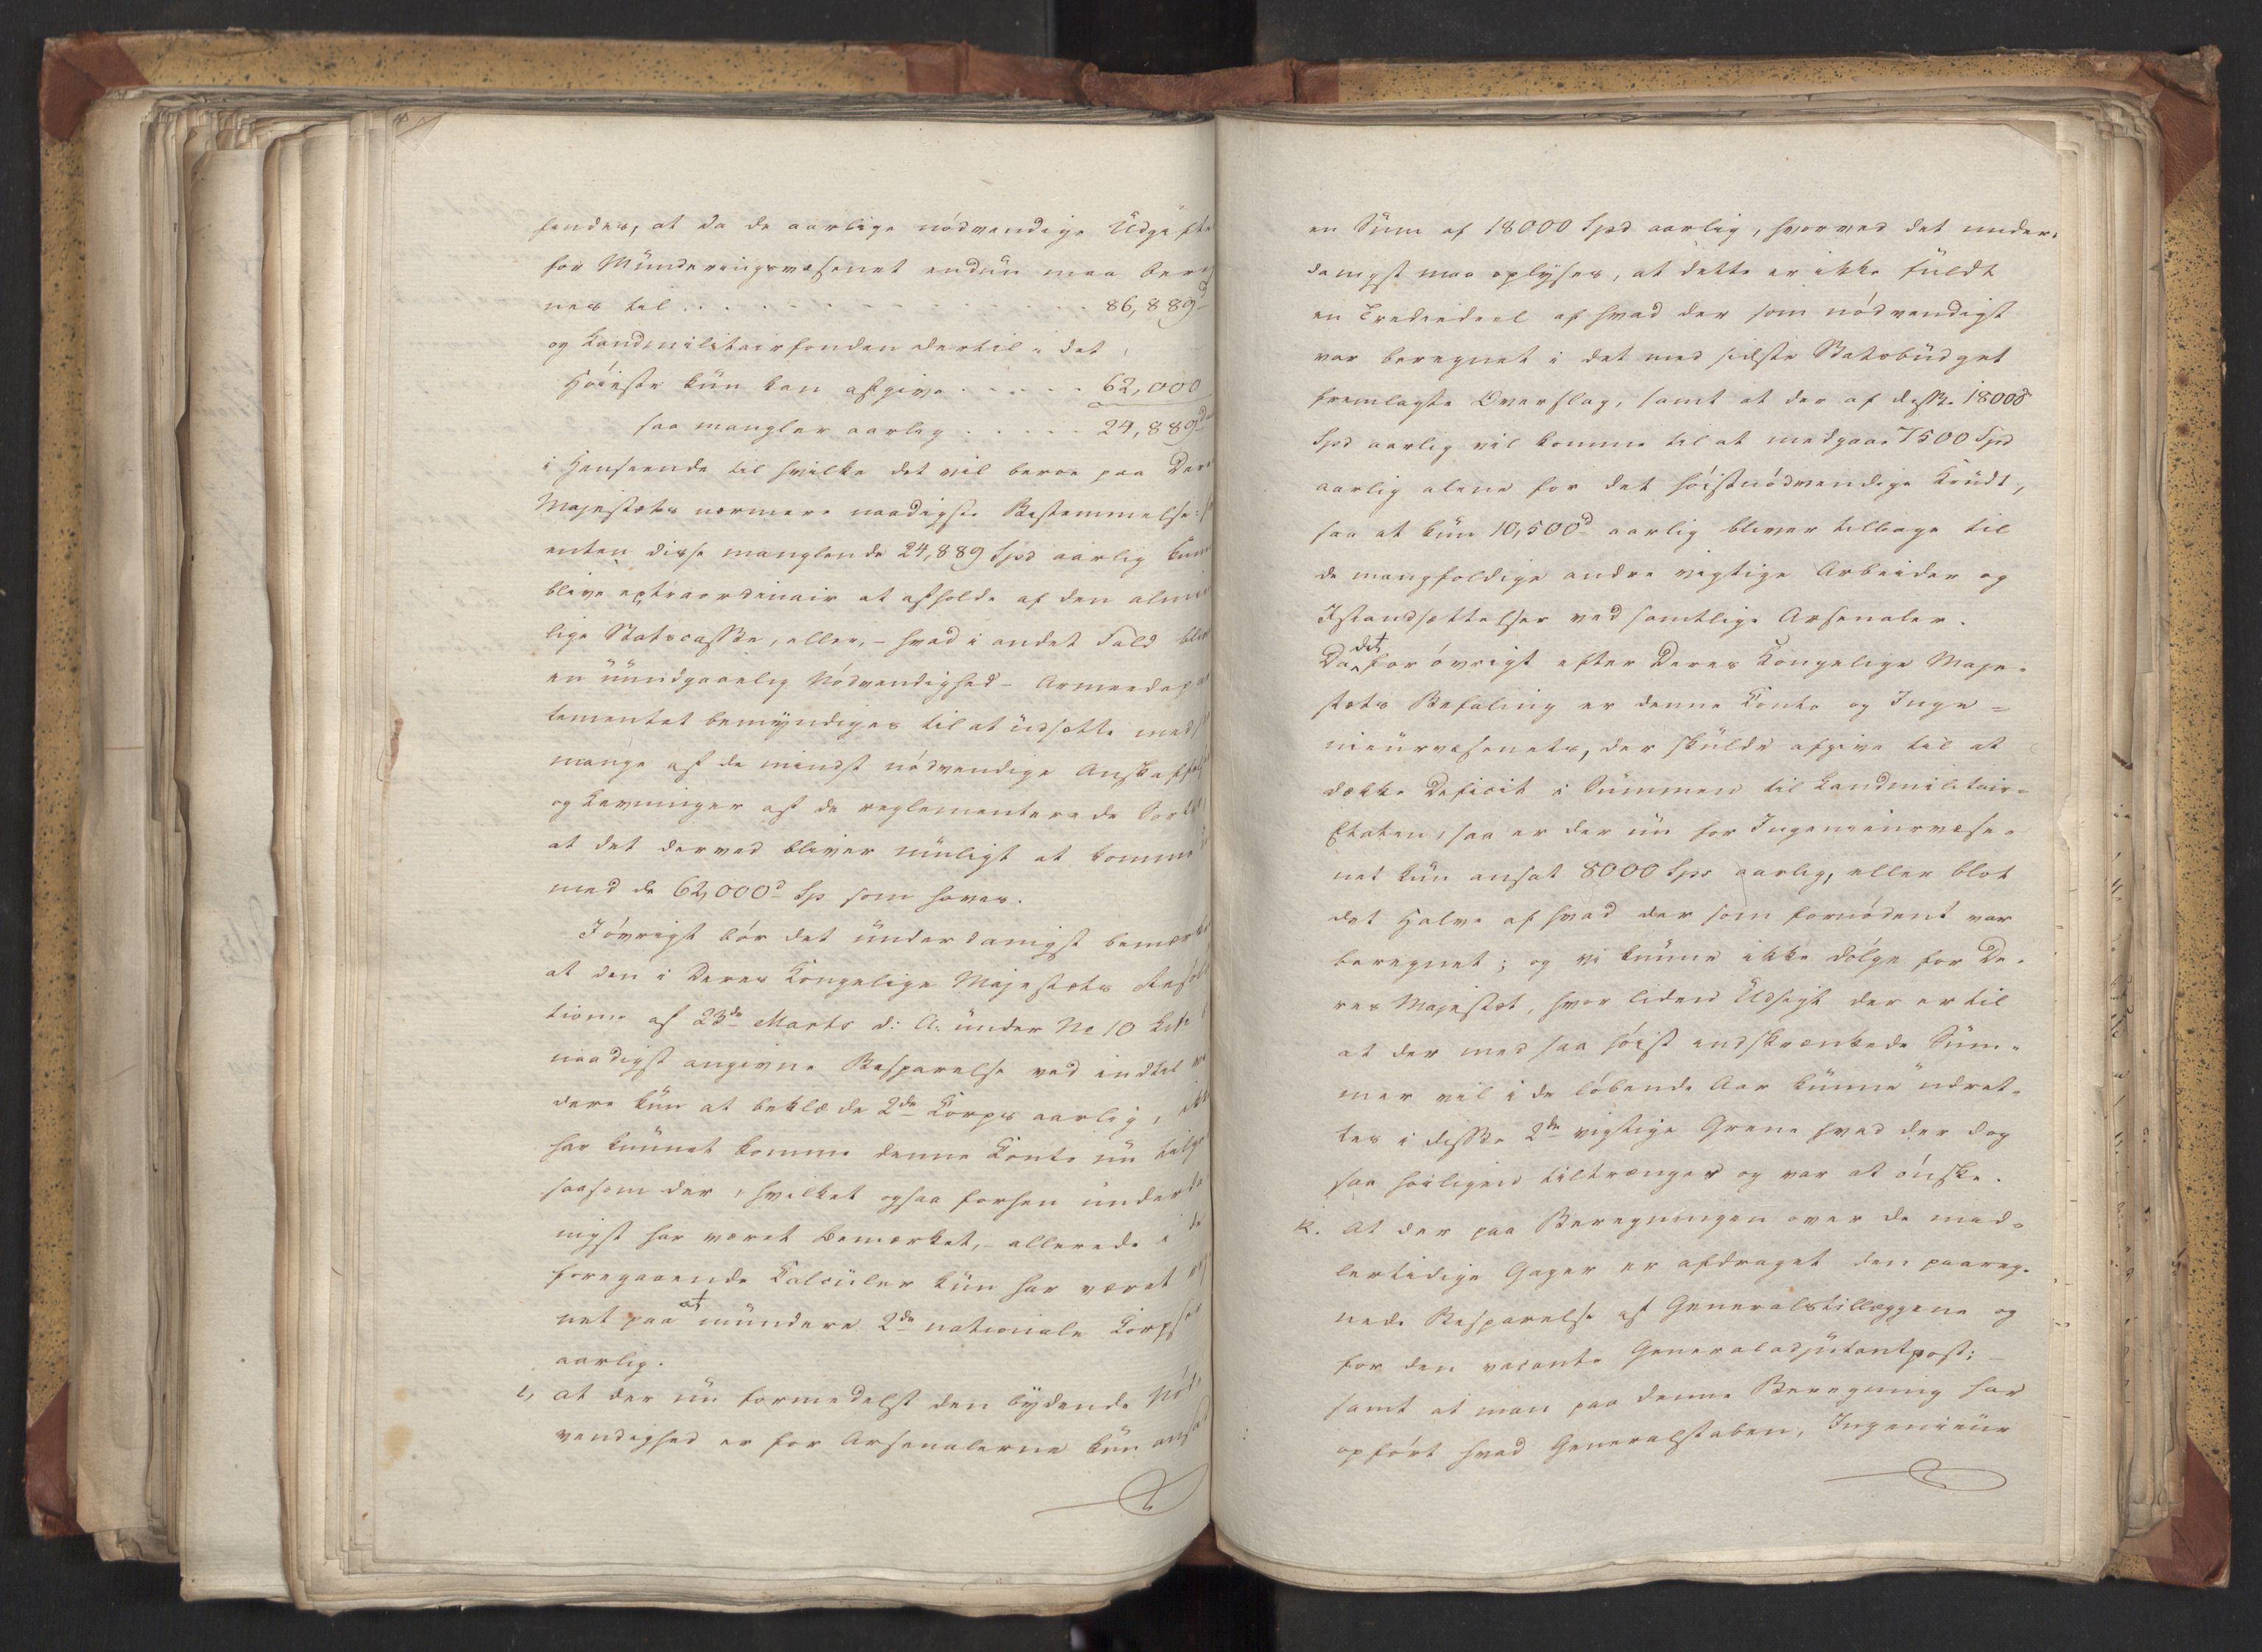 sendes, at da de aarlige nödvendige Udgifte
for Munderingsvæsenet endnu maa bereg
nes til . . . . . . . . . . . . 86,889d
og Landmilitairfonden dertil i det
Höieste kun kan afgive . . . . . 62,000
saa mangler aarlig . . . . . 24,889d
i Henseende til hvilke det vil beroe paa Deres
Majestæts nærmere naadigste Bestemmelse:
enten disse manglende 24,889 Spd aarlig kunne
blive extraordinair at afholde af den almin
lige Statscasse, eller, – hvad i andet Fald bliver
en uundgaaelig Nödvendighed – Armeedepar
tementet bemyndiges til at udsætte med
mange af de mindst nödvendige Anskaffel
og Levninger af de reglementerede Sorter
at det derved bliver muligt at komme
med de 62,000d Sp som haves.
Iövrigt bör det underdanigst bemærkes
at den i Deres Kongelige Majestæts Resolu
tion af 23de Marts d: A. under No 10 Litr
naadigst angivne Besparelse ved indtil
dere kun at beklæde 2de Korps aarlig, ikke
har kunnet komme denne Konto nu tilgode
saasom der, hvilket ogsaa forhen underda
nigst har været bemærket, – allerede i de
foregaaende Calculer kun har været reg
net paa at mundere 2de nationale Korpser
aarlig.
i, at der nu formedelst den bydende Nöd
vendighed er for Arsenalerne kun ansat
en Sum af 18000 Spd aarlig, hvorved det under-
danigst maa oplyses, at dette er ikke fuldt
en Trediedeel af hvad der som nödvendigst
var beregnet i det med sidste Statsbudget
fremlagte Overslag, samt at der af disse 18000
Spd aarlig vil komme til at medgaae 7500 Spd
aarlig alene for det höistnödvendige Krudt,
saa at kun 10,500d aarlig bliver tilbage til
de mangfoldige andre vigtige Arbeider og
Istandsættelser ved samtlige Arsenaler.
Da det forövrigt efter Deres Kongelige Maje-
stæts Befaling er denne Konto og Inge=
nieurvæsenets, der skulde afgive til at
dække Deficit i Summen til Landmilitair-
Etaten, saa er der nu for Ingenieurvæse-
net kun ansat 8000 Spd aarlig, eller blot
det Halve af hvad der som fornödent var
beregnet; og vi kunne ikke dölge for De-
res Majestæt, hvor liden Udsigt der er til
at der med saa höist indskrænkede Sum-
mer vil i de löbende Aar kunne udret-
tes i disse 2de vigtige Grene hvad der dog
saa höiligen tiltrænges og var at önske.
k. At der paa Beregningen over de mid-
lertidige Gager er afdraget den paareg-
nede Besparelse af Generalstillæggene og
for den vacante Generaladjutantpost; –
samt at man paa denne Beregning har
opfört hvad Generalstaben, Ingenieur